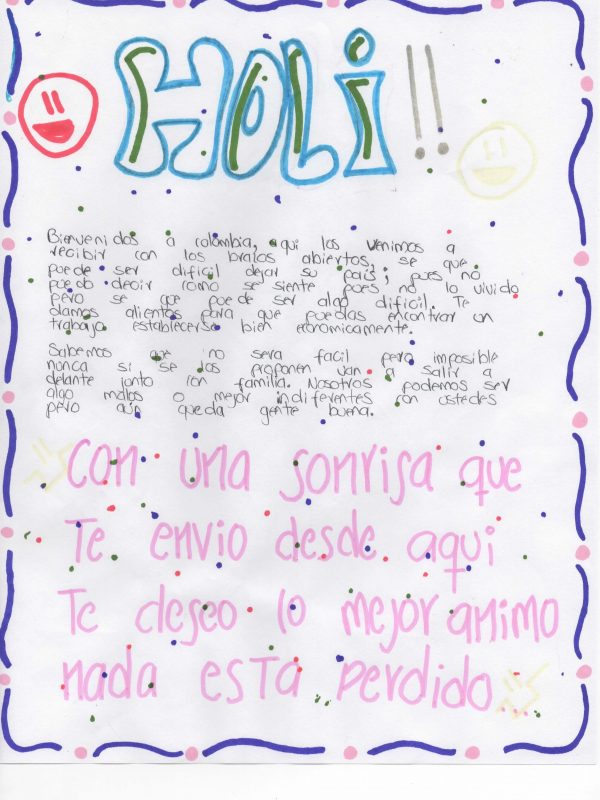 HOLi!!
Bienvenidos a colombia, aqui los venimos a
recibir con los brazos abiertos, se que
puede ser dificil dejar su pais; pues no
puedo decir como se siente pues no lo vivido
pero se que puede ser algo dificil. Te
damos alientos para que puedas encontrar un
trabajo establecerse bien economicamente.
Sabemos que no sera facil pero imposible
nunca si se los proponen van a salir a
delante junto con familia. Nosotros podemos ser
algo malos o mejor indiferentes con ustedes
pero aún queda gente buena.
con una sonrisa que
Te envio desde aqui
Te deseo lo mejor animo
nada esta perdido